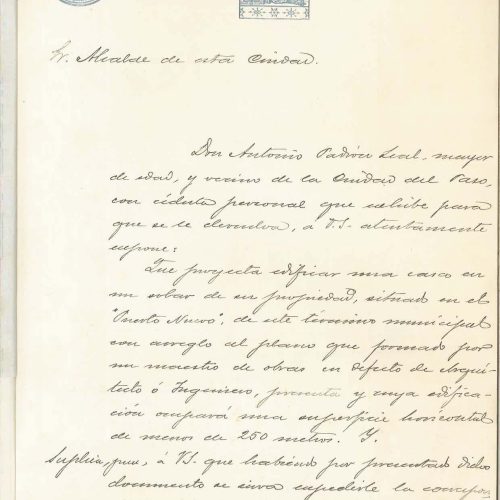 Sr. Alcalde de esta Ciudad.
Don Antonio Padrón Leal, mayor
de edad, y vecino de la Ciudad del Paso,
con cédula personal que exhibe para
que se le devuelva, a V.S. atentamente
expone:
Que proyecta edificar una casa en
un solar de su propiedad, situado en el
"Puerto Nuevo", de este término municipal
con arreglo al plano que formado por
un maestro de obras en defecto de Arqui-
tecto ó Ingeniero, presenta y cuya edifica-
ción ocupará una superficie horizontal
de menos de 250 metros. Y.
Suplica, pues, á V.S. que habiendo por presentado dicho
documento se sirva expedirle la corres